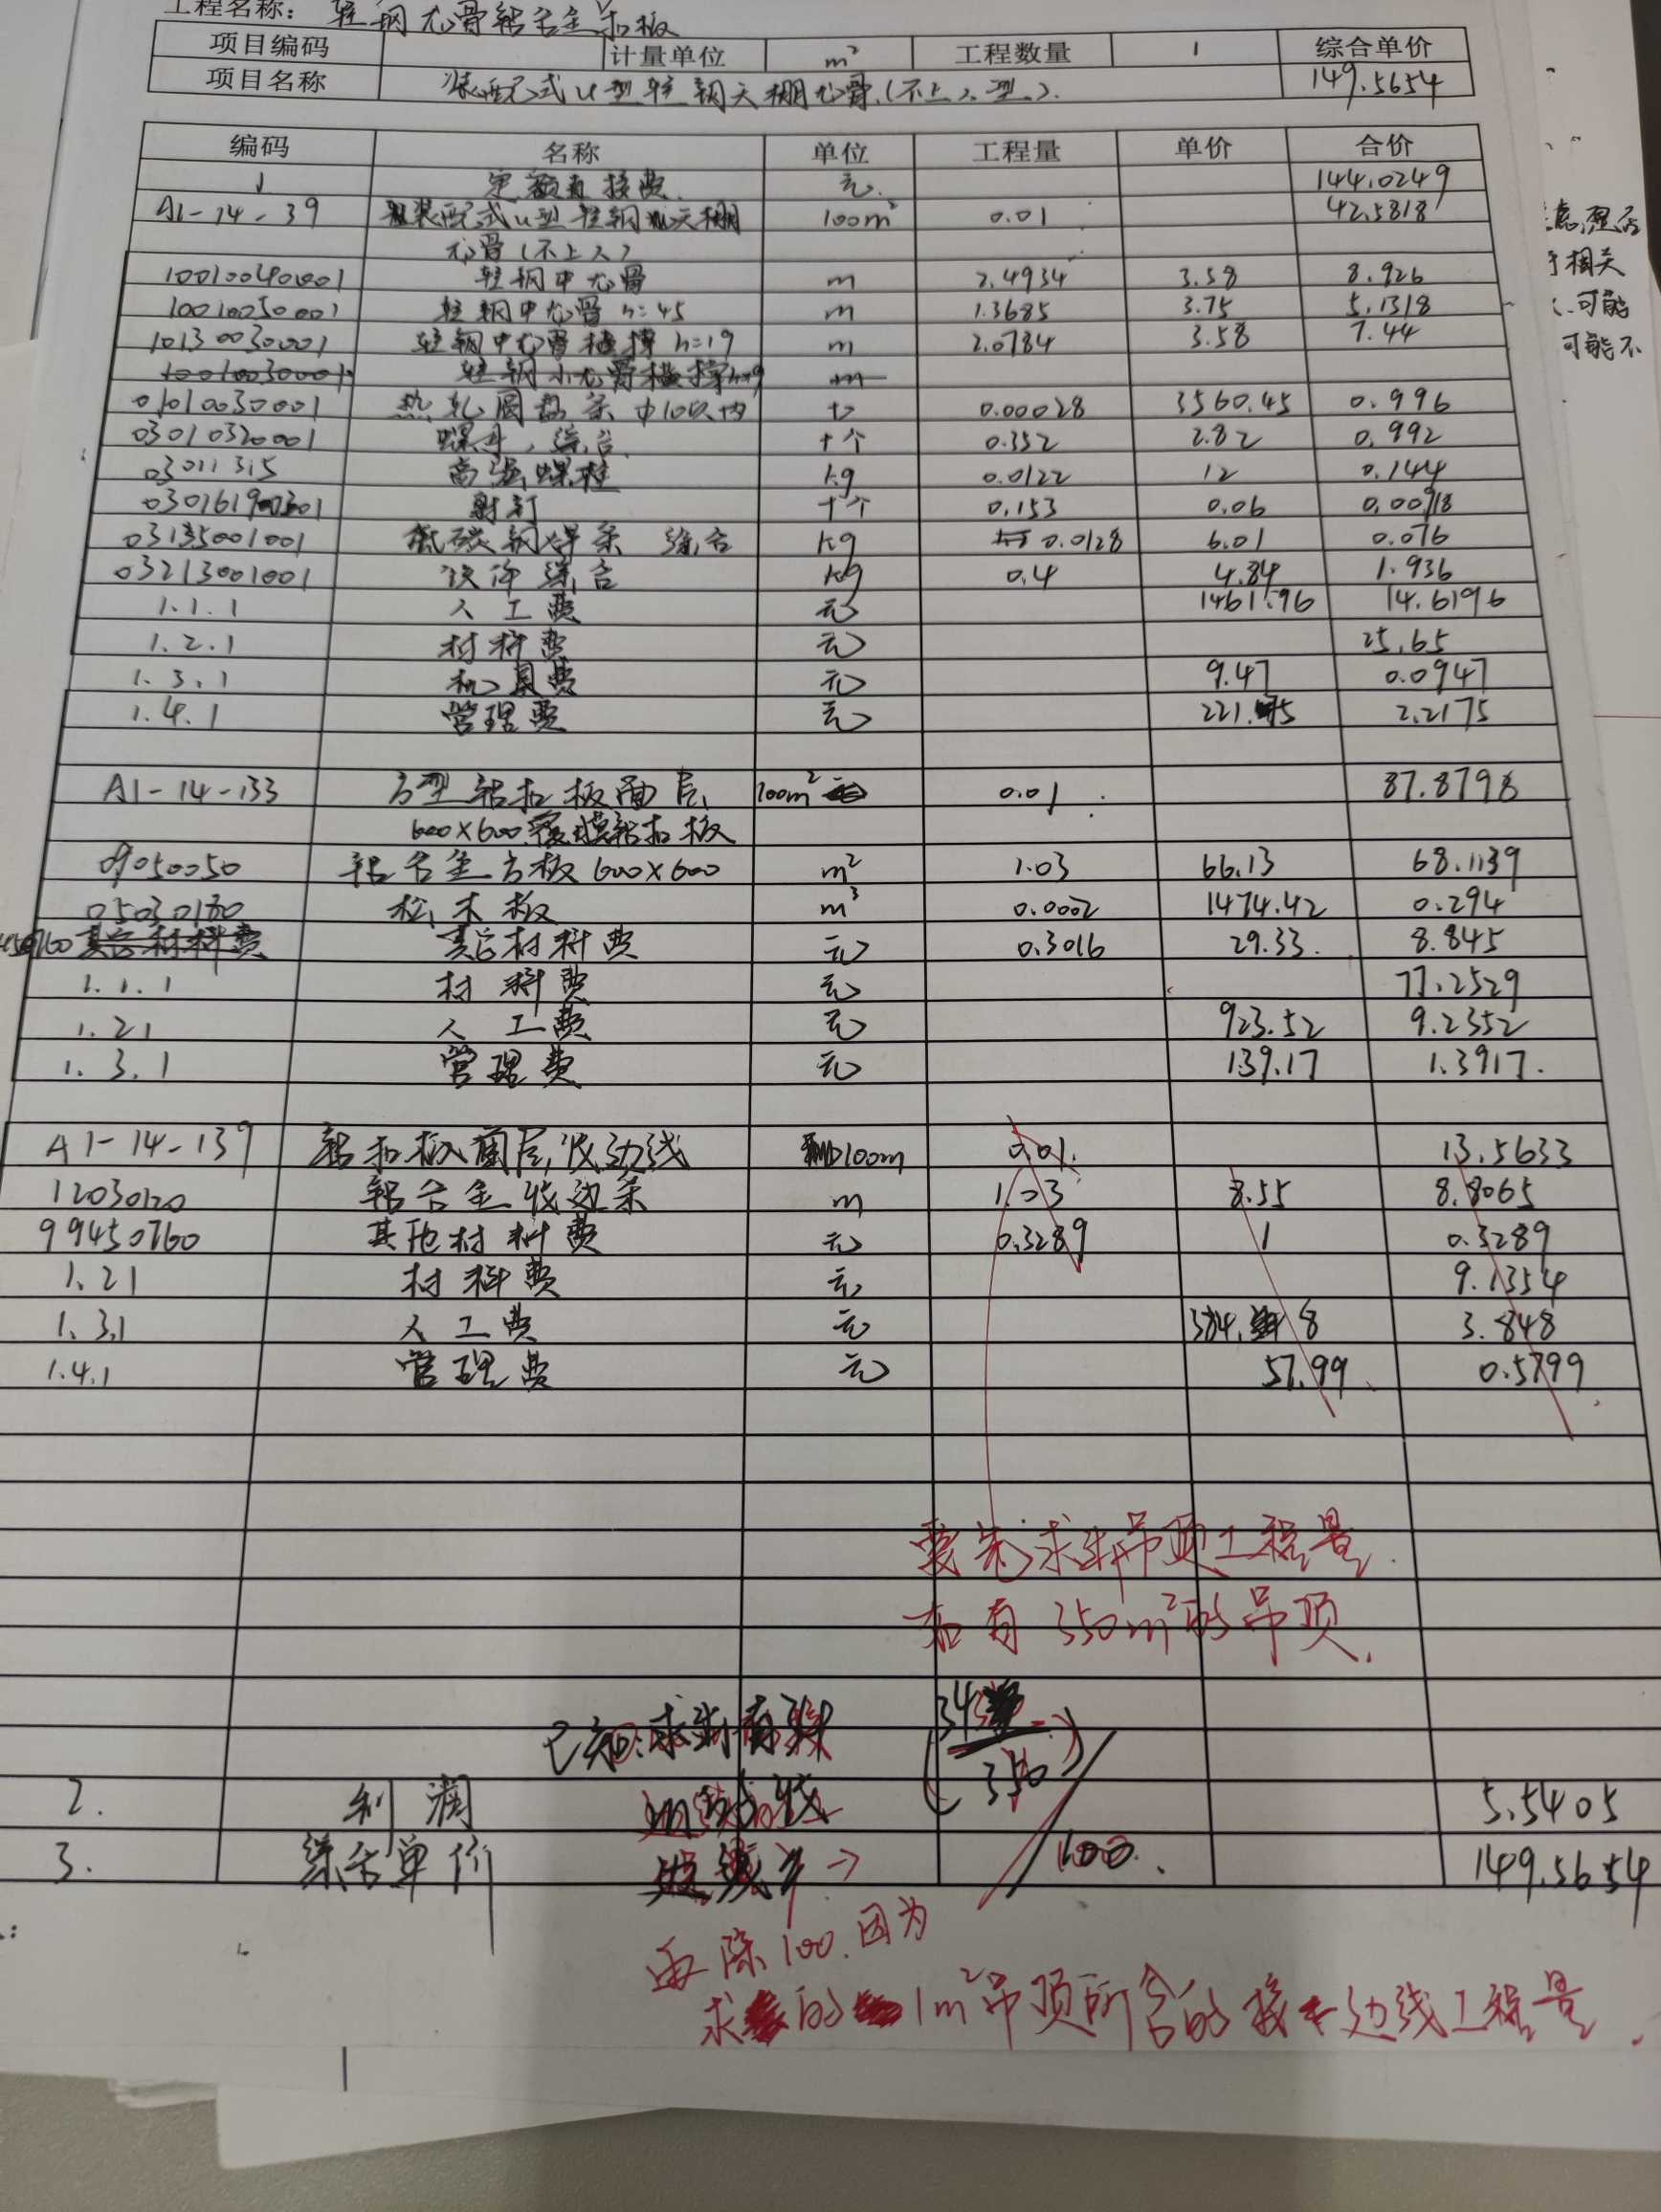 工程名称: 轻钢龙骨铝合金扣板
项目编码 计量单位 m² 工程数量 1 综合单价
项目名称 装配式U型轻钢天棚龙骨(不上人型). 149.5654
编码 名称 单位 工程量 单价 合价
1 定额直接费 元 144.0249
A1-14-39 装配式U型轻钢天棚 100m² 0.01 42.5818
龙骨(不上人)
10010040001 轻钢中龙骨 m 2.4934 3.58 8.926
10010050001 轻钢中龙骨 h=45 m 1.3685 3.75 5.1318
10130030001 轻钢中龙骨横撑 h=19 m 2.0784 3.58 7.44
10010030001 轻钢小龙骨横撑h=19 m
01010030001 热轧圆盘条 φ10以内 t 0.00028 3560.45 0.996
03010320001 螺母,综合 十个 0.352 2.82 0.992
03011315 高强螺栓 kg 0.0122 12 0.144
射钉 十个 0.153 0.06 0.00918
03135001001 低碳钢焊条 综合 kg 0.0128 6.01 0.076
03213001001 铁件 综合 kg 0.4 4.84 1.936
1.1.1 人工费 元 1461.96 14.6196
1.2.1 材料费 元 25.65
1.3.1 机具费 元 9.47 0.0947
1.4.1 管理费 元 221.75 2.2175
A1-14-133 方型铝扣板面层 100m² 0.01 87.8798
600×600覆膜铝扣板
09050050 铝合金方板 600×600 m² 1.03 66.13 68.1139
05030180 松木板 m³ 0.0002 1474.42 0.294
其它材料费 其它材料费 元 0.3016 29.33 8.845
1.1.1 材料费 元 77.2529
1.21 人工费 元 923.52 9.2352
1.3.1 管理费 元 139.17 1.3917
A1-14-139 铝扣板面层,收边线 100m 0.01 13.5633
12030120 铝合金收边条 m 1.03 8.55 8.8065
99450760 其他材料费 元 0.3289 1 0.3289
1.21 材料费 元 9.1354
1.3.1 人工费 元 384.8 3.848
1.4.1 管理费 元 57.99 0.5799
要先求出吊顶工程量.
如有350m²的吊顶.
已知:求出有
350
2. 利润 5.5405
3. 综合单价 → 100. 149.5654
再除100.因为
求的1m²吊顶所含的接边线工程量.